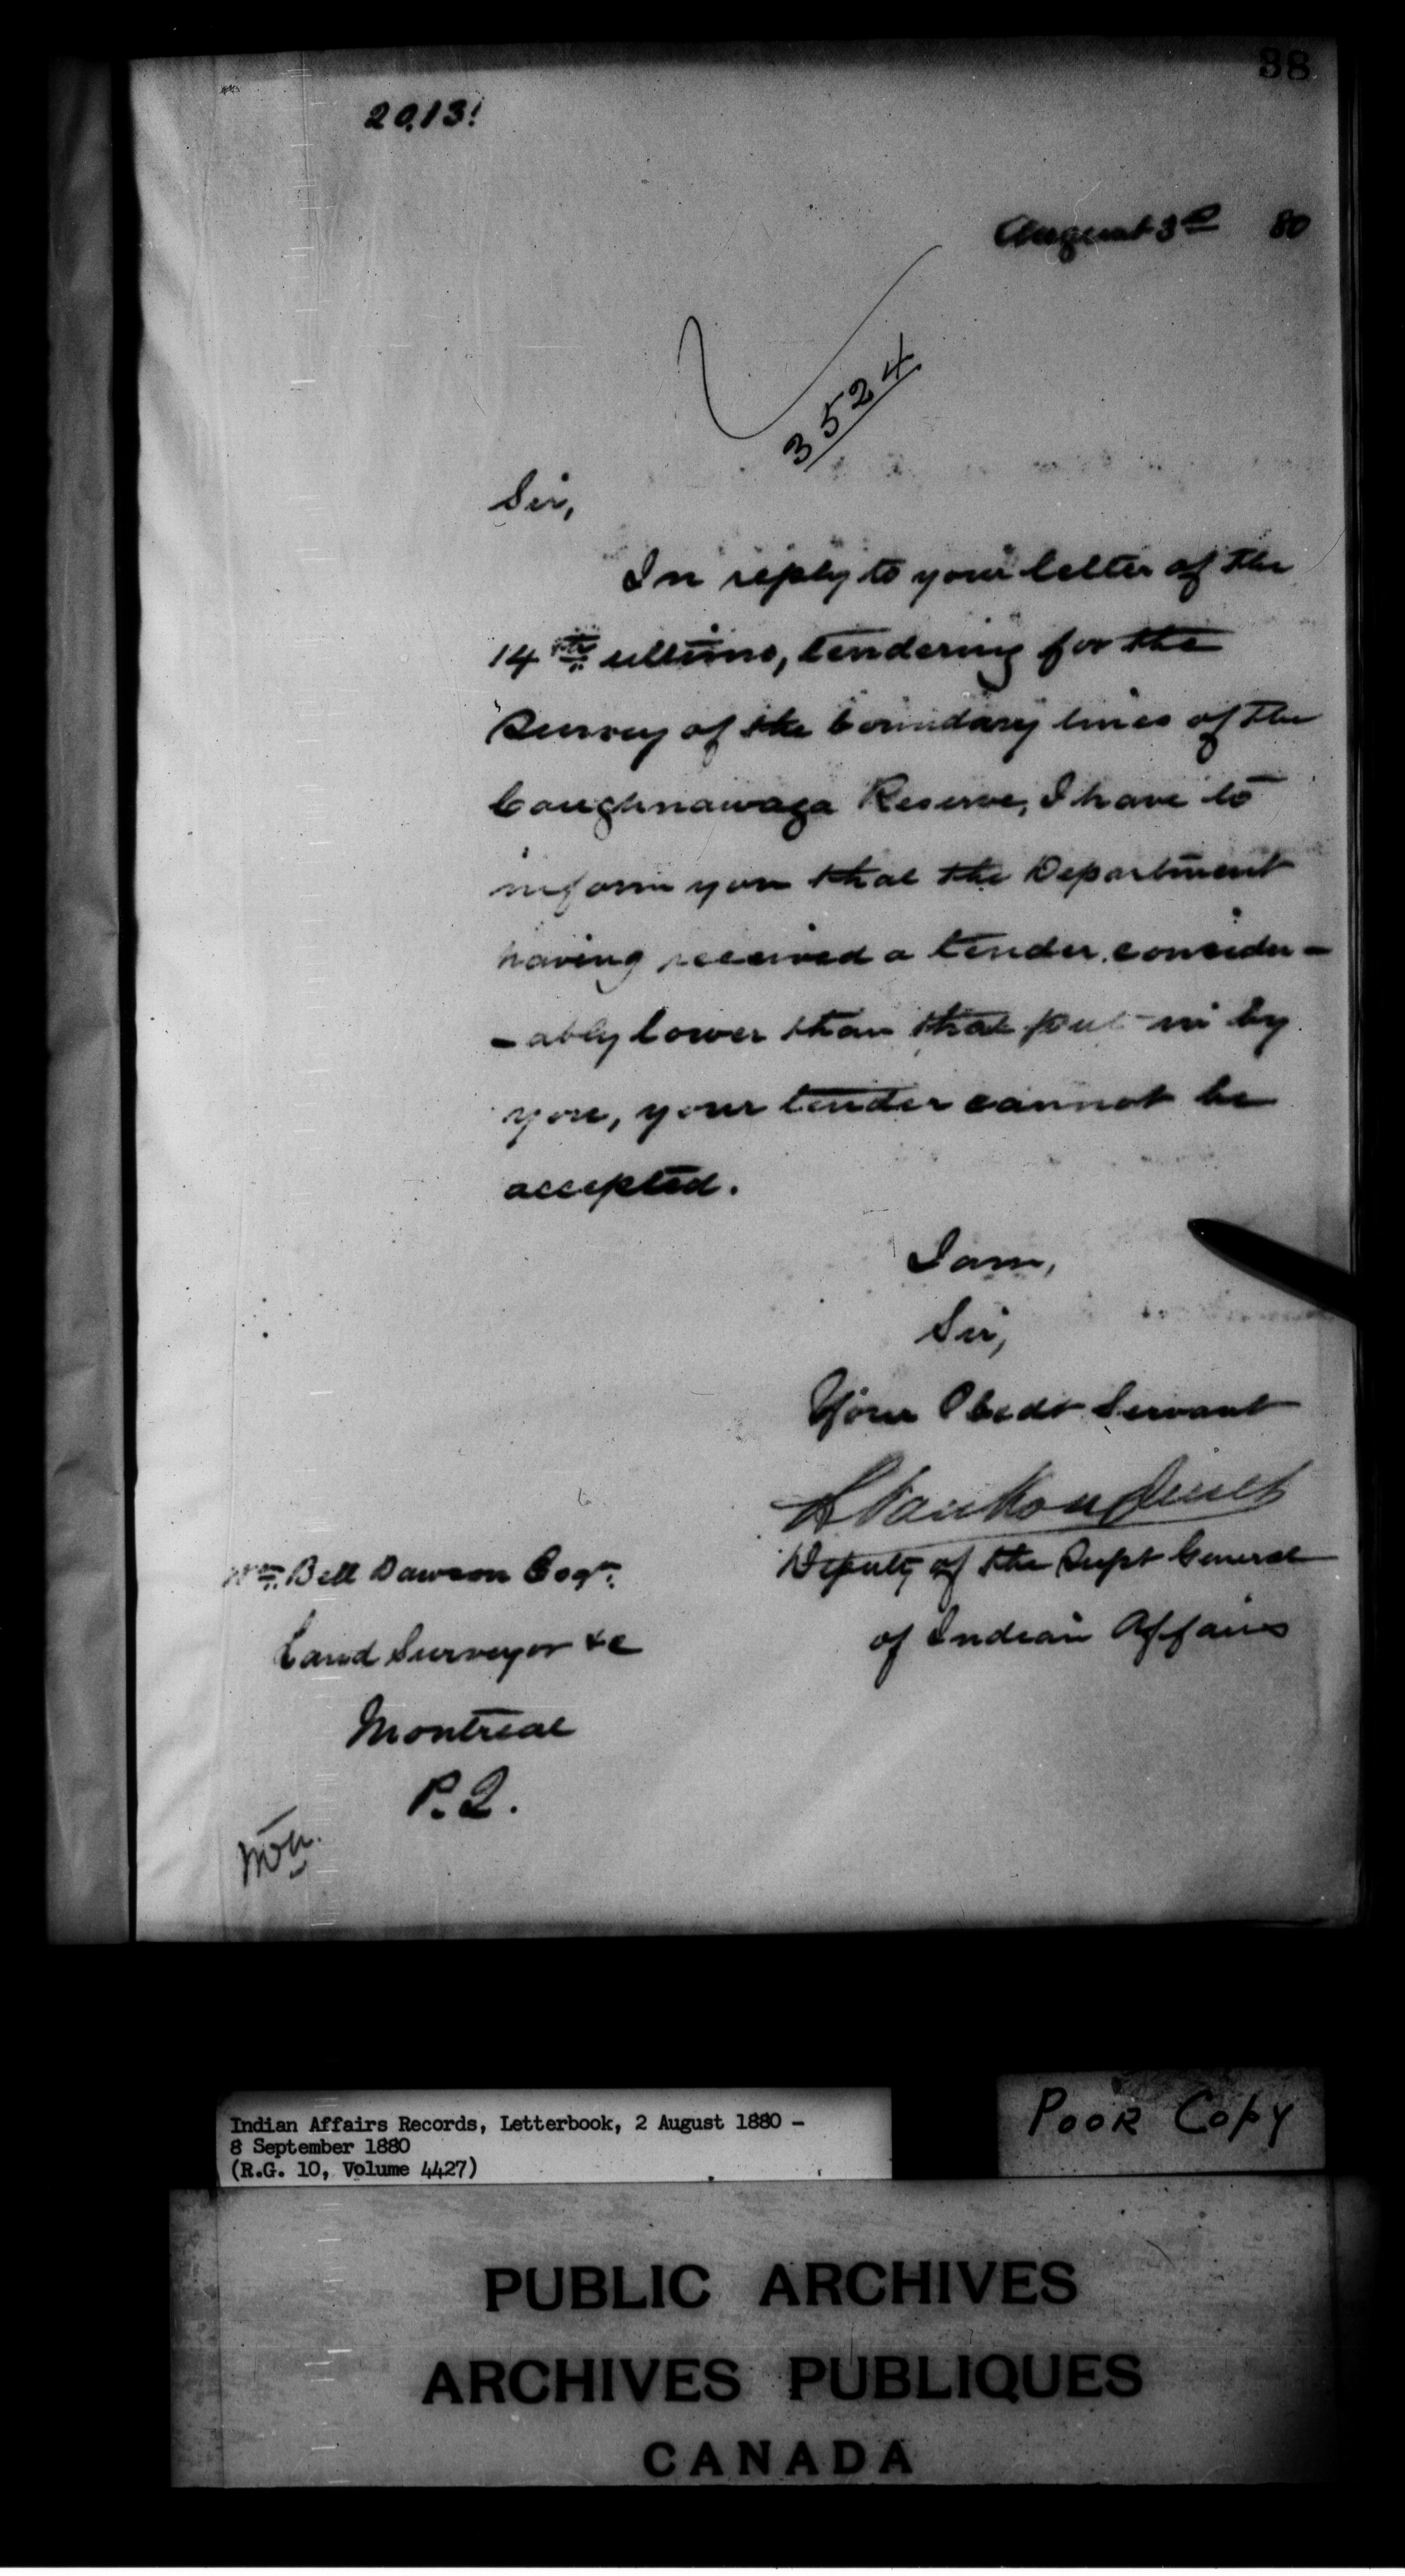 38
20,131
August 3d 80
3524
Sir,
In reply to your letter of the
14th ultimo, tendering for the
Survey of the boundary lines of the
Caughnawaga Reserve, I have to
inform you that the Department
having received a tender consider-
-ably lower than that put in by
you, your tender cannot be
accepted.
I am,
Sir,
Your Obedt Servant
L VanKoughnet
Deputy of the Supt General
of Indian Affairs
Wm. Bell Dawson Esqr.
Land Surveyor &c
Montreal
P.Q.
Indian Affairs Records, Letterbook, 2 August 1880 -
8 September 1880
(R.G. 10, Volume 4427)
POOR COPY
PUBLIC ARCHIVES
ARCHIVES PUBLIQUES
CANADA